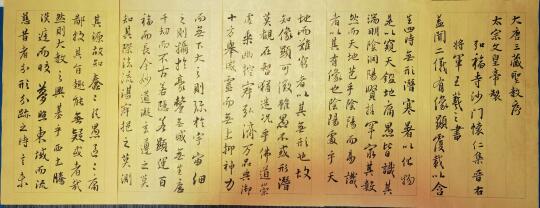 大唐三藏聖教序
太宗文皇帝製
弘福寺沙門懷仁集晉右
將軍王羲之書
蓋聞二儀有像顯覆載以含
生四時無形潛寒暑以化物
是以窺天鑑地庸愚皆識其
端明陰洞陽賢哲罕窮其數
然而天地苞乎陰陽而易識
者以其有像也陰陽處乎天
地而難窮者以其無形也故
知像顯可徵雖愚不惑形潛
莫覩在智猶迷況乎佛道崇
虛乘幽控寂弘濟萬品典御
十方舉威靈而無上抑神力
而無下大之則彌於宇宙細
之則攝於毫釐無滅無生歷
千劫而不古若隱若顯運百
福而長今妙道凝玄遵之莫
知其際法流湛寂挹之莫測
其源故知蠢々凡愚區々庸
鄙投其旨趣能無疑惑者哉
然則大教之興基乎西土騰
漢庭而皎夢照東域而流
慈昔者分形分跡之時言未